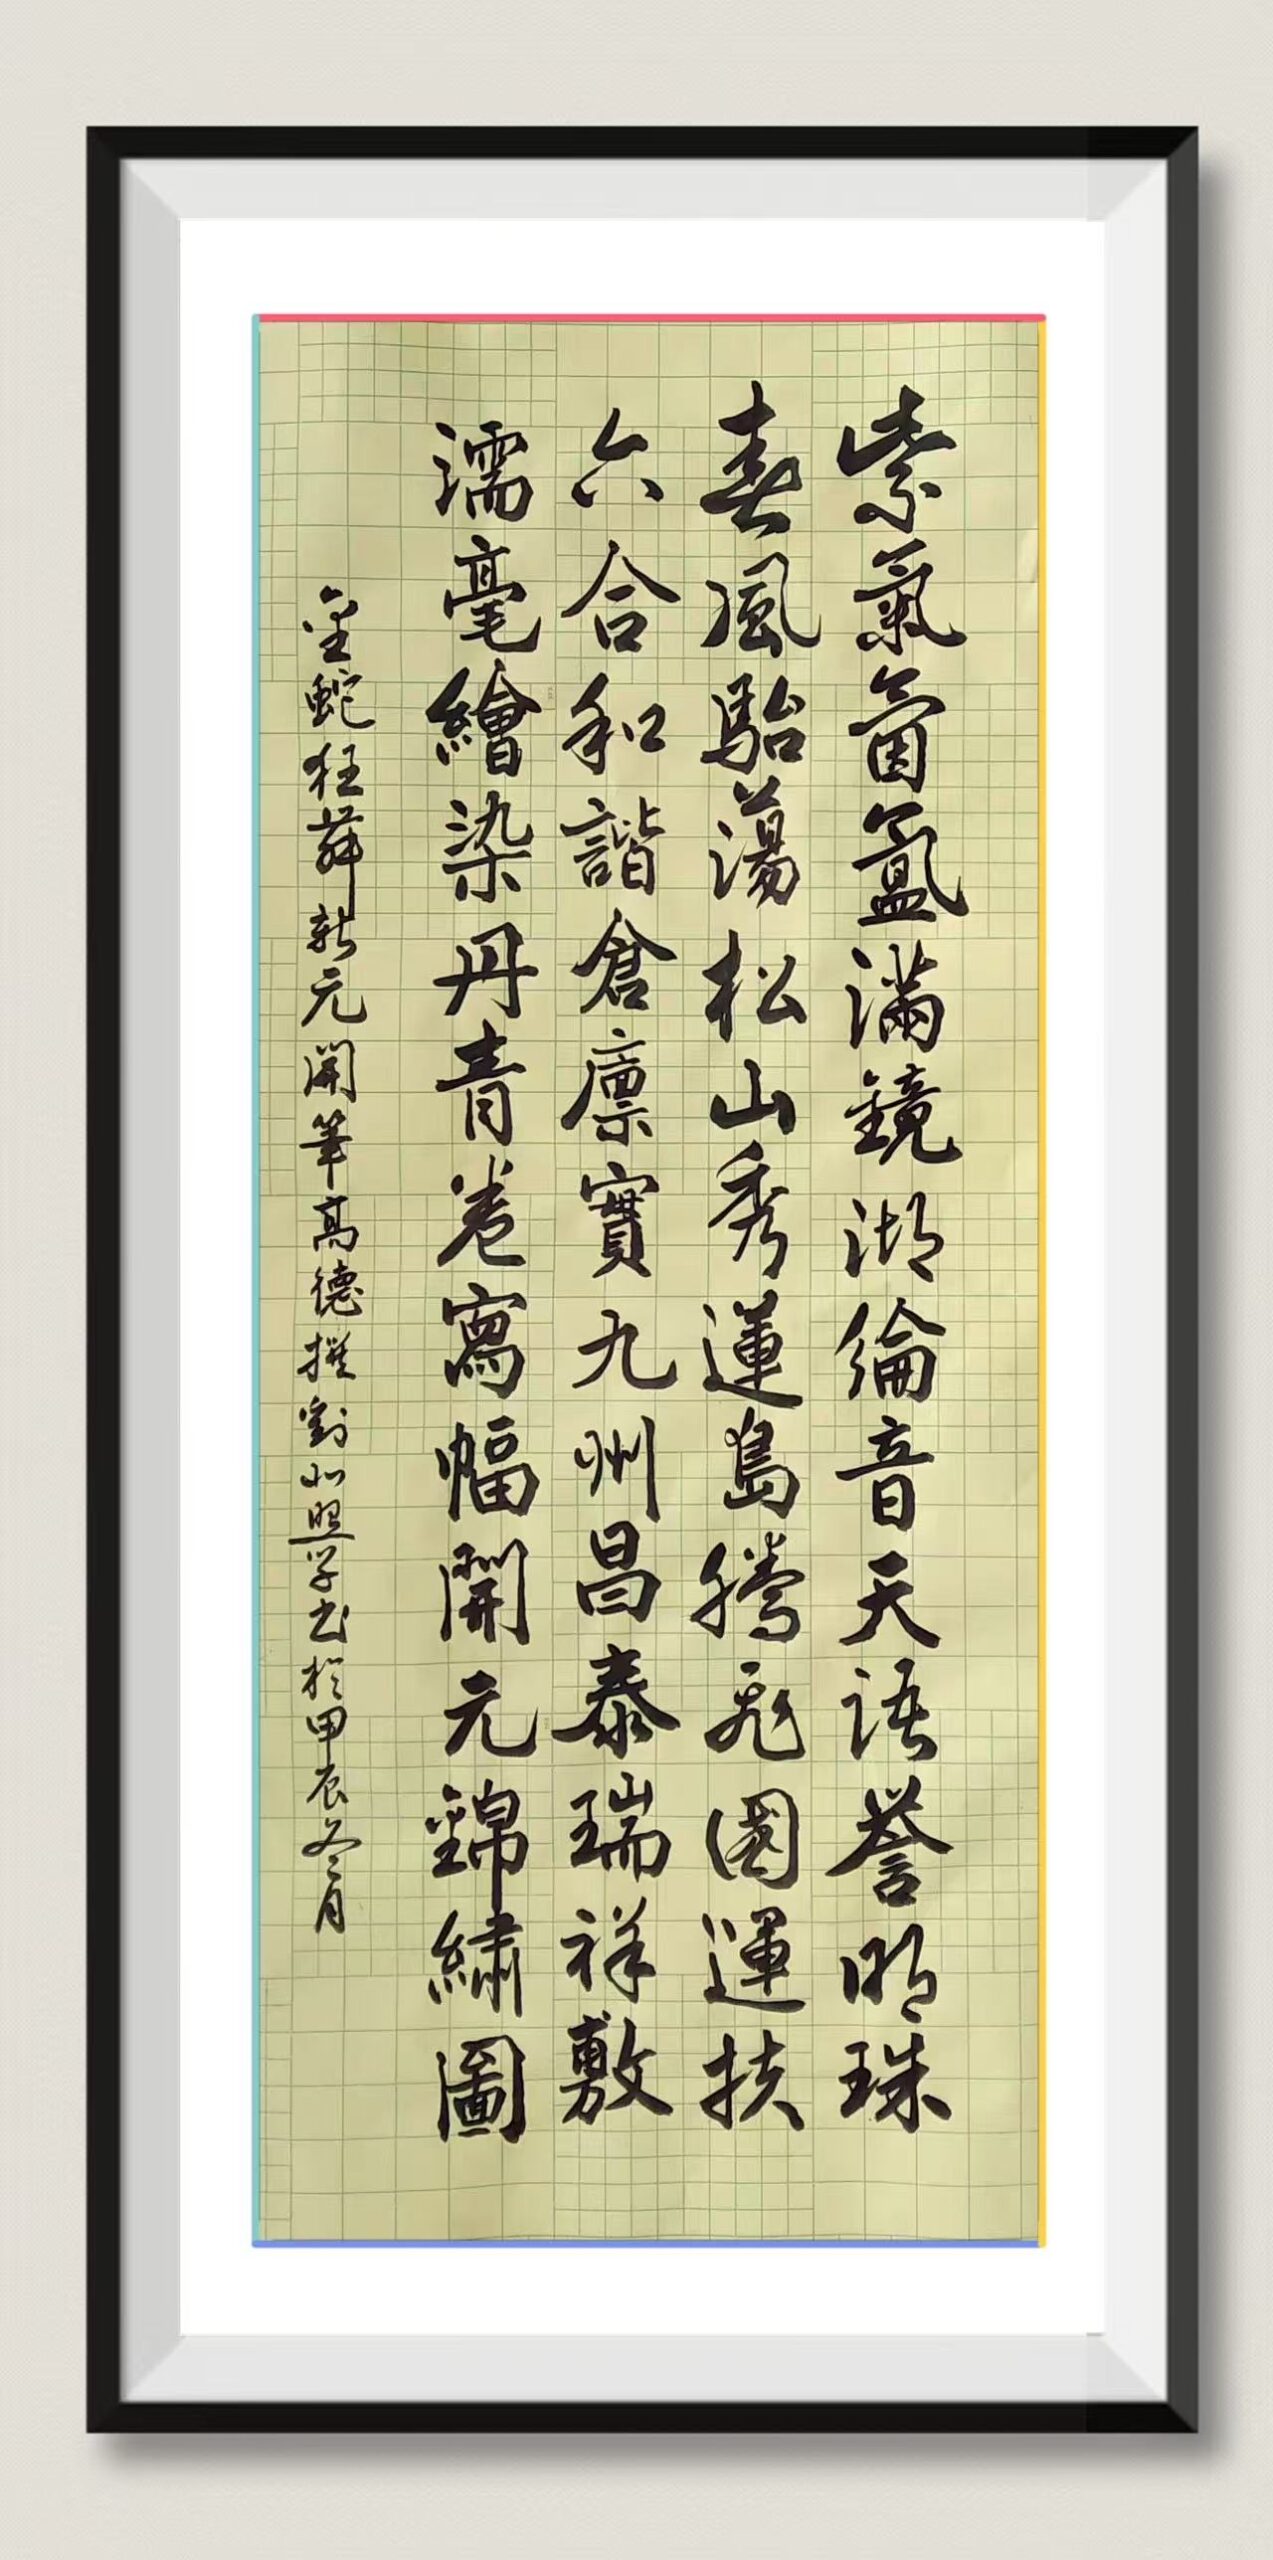 紫氣氤氳滿鏡湖綸音天語譽明珠
春風駘蕩松山秀蓮島騰飛國運扶
六合和諧倉廪實九州昌泰瑞祥敷
濡毫繪染丹青卷寫幅開元錦繡圖
金蛇狂舞新元開筆高德撰劉心照学书於甲辰冬月